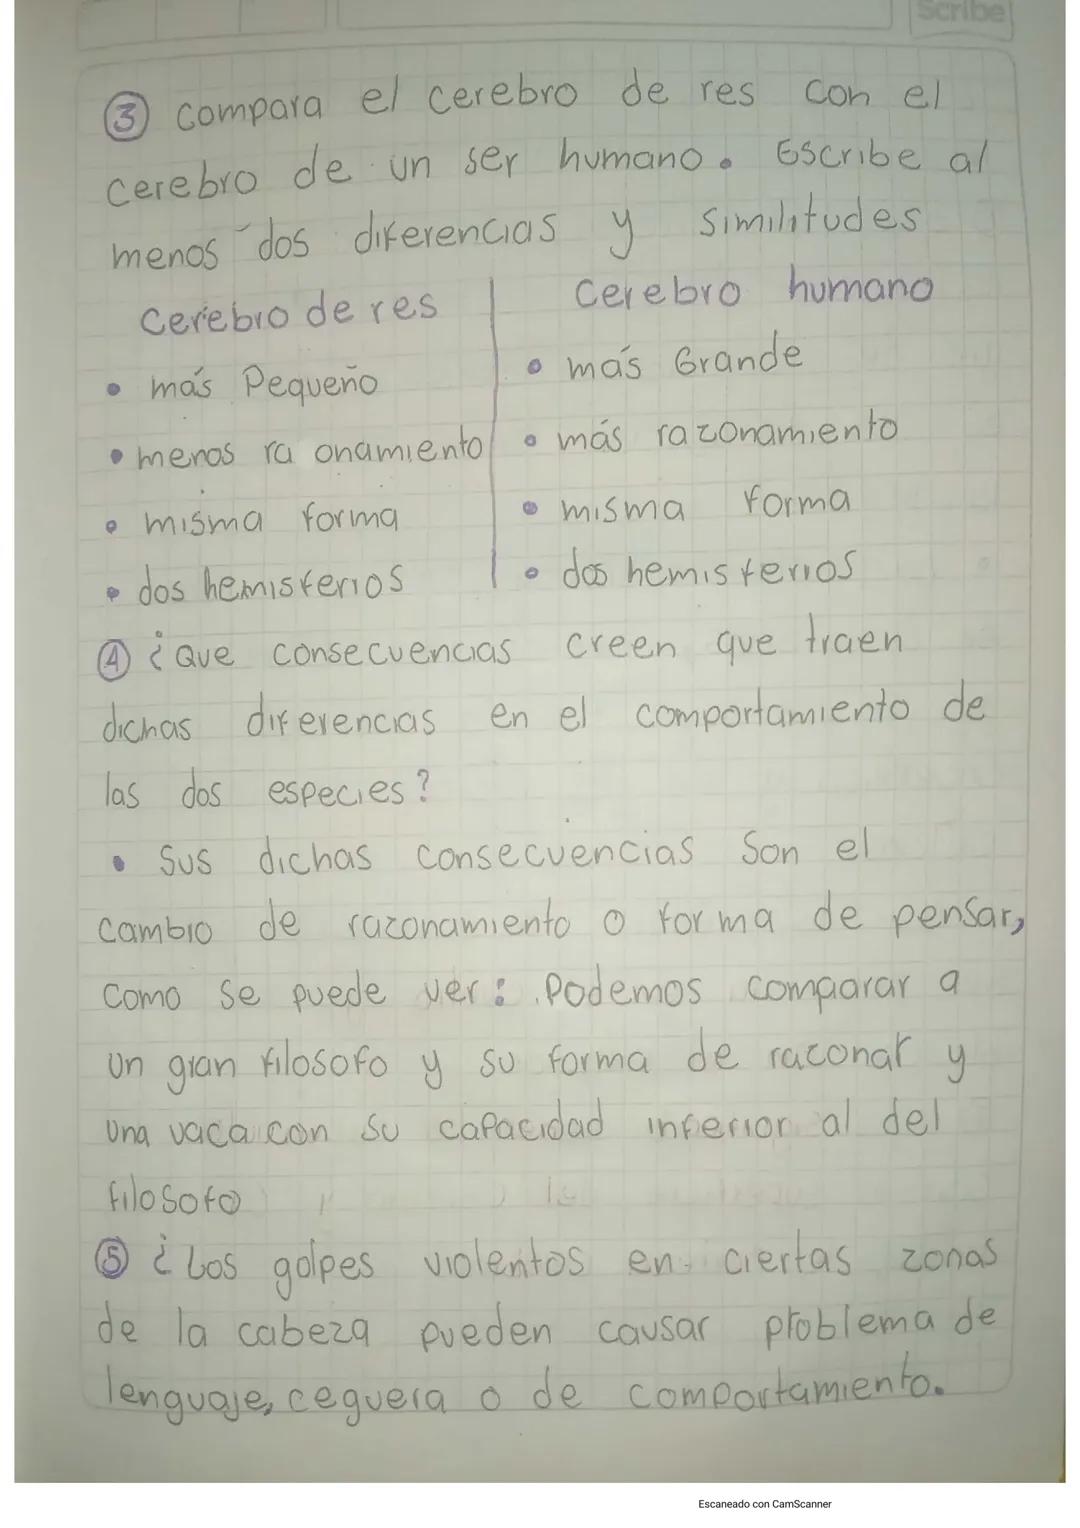 Scribe
3 compara el cerebro de res con el
cerebro de un ser humano. Escribe al
menos dos diferencias y similitudes
Cerebro de res
Cerebro humano
• más Pequeño
• más Grande
• menos ra onamiento
• más razonamiento
• misma forma
• misma forma
• dos hemisferios
• dos hemisferios
4 ¿Que consecuencias creen que traen
dichas diferencias en el comportamiento de
las dos especies?
• Sus dichas consecuencias Son el
cambio de razonamiento o forma de pensar,
como se puede ver: Podemos comparar a
un gran filosofo y su forma de razonar y
una vaca con su capacidad inferior al del
filosofo
5 ¿Los golpes violentos en ciertas zonas
de la cabeza pueden causar problema de
lenguaje, ceguera o de comportamiento.
Escaneado con CamScanner